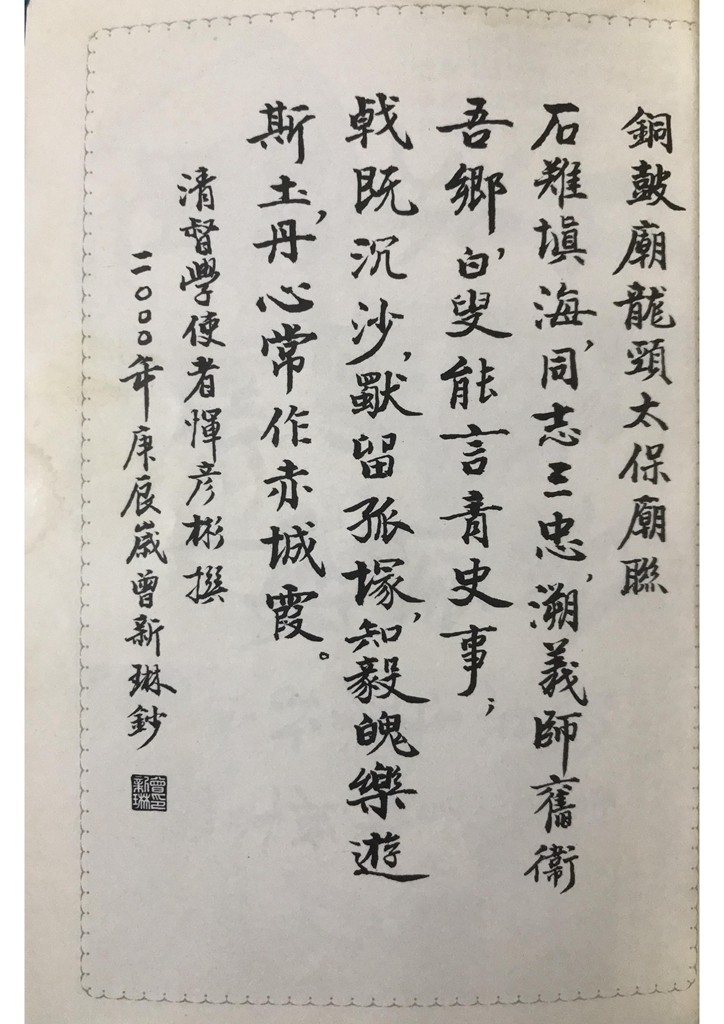 銅鼓廟龍頭太保廟聯
石難填海,同志三忠,溯義師舊衛
吾鄉,白叟能言青史事;
戟既沉沙,獸留孤塚,知毅魄樂遊
斯土,丹心常作赤城霞。
清督學使者惲彥彬撰
二〇〇〇年庚辰歲曾新琳鈔
曾新琳印